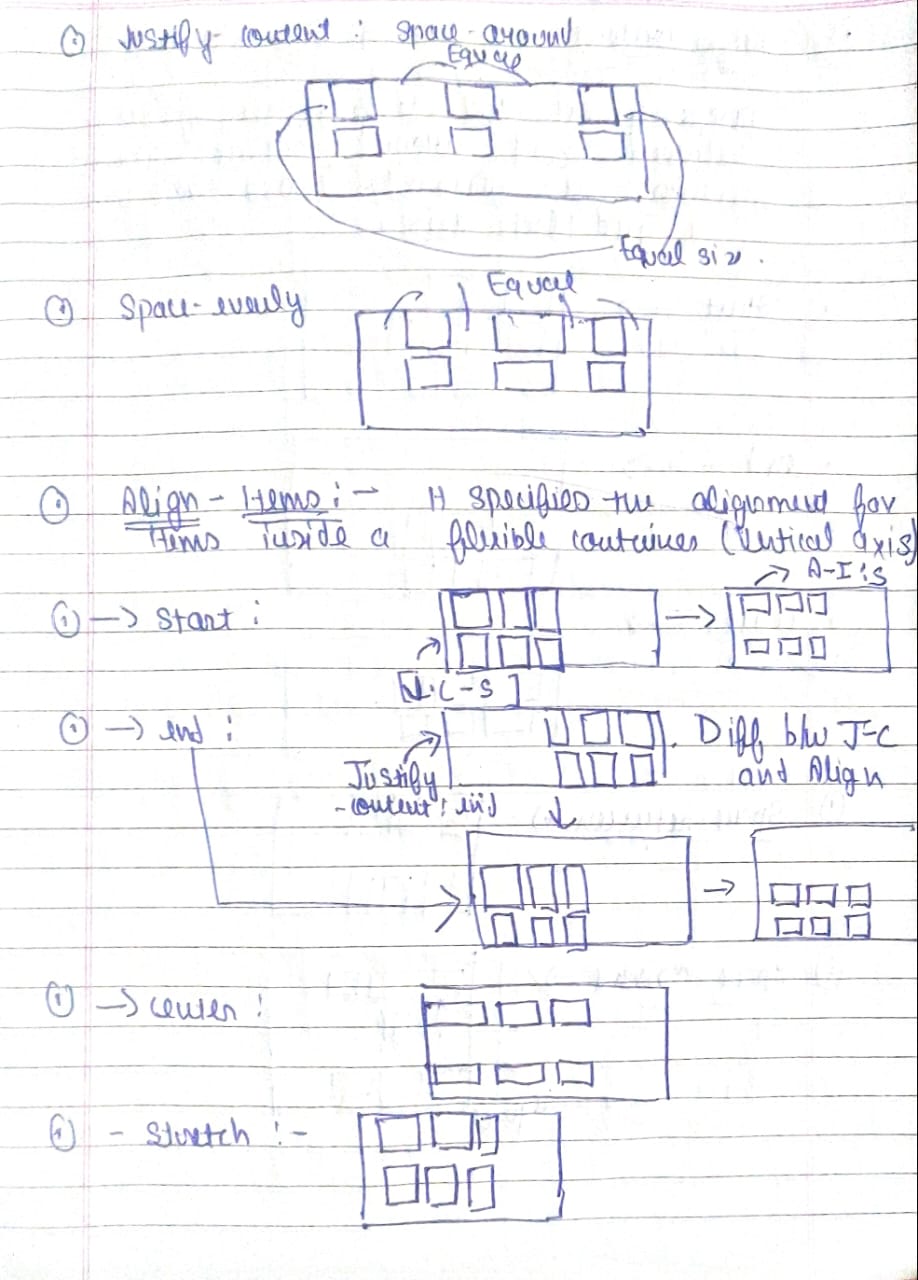 Justify-content : space-around
Equal
Equal size.
Space-evenly
Equal
Align-Items :- It specifies the alignment for
items inside a flexible container (Vertical axis)
→ A-I:S
① → Start :
J.C-S
① → end :
Diff b/w J-C
and Align
Justify
-content : end
① → center :
- Stretch :-